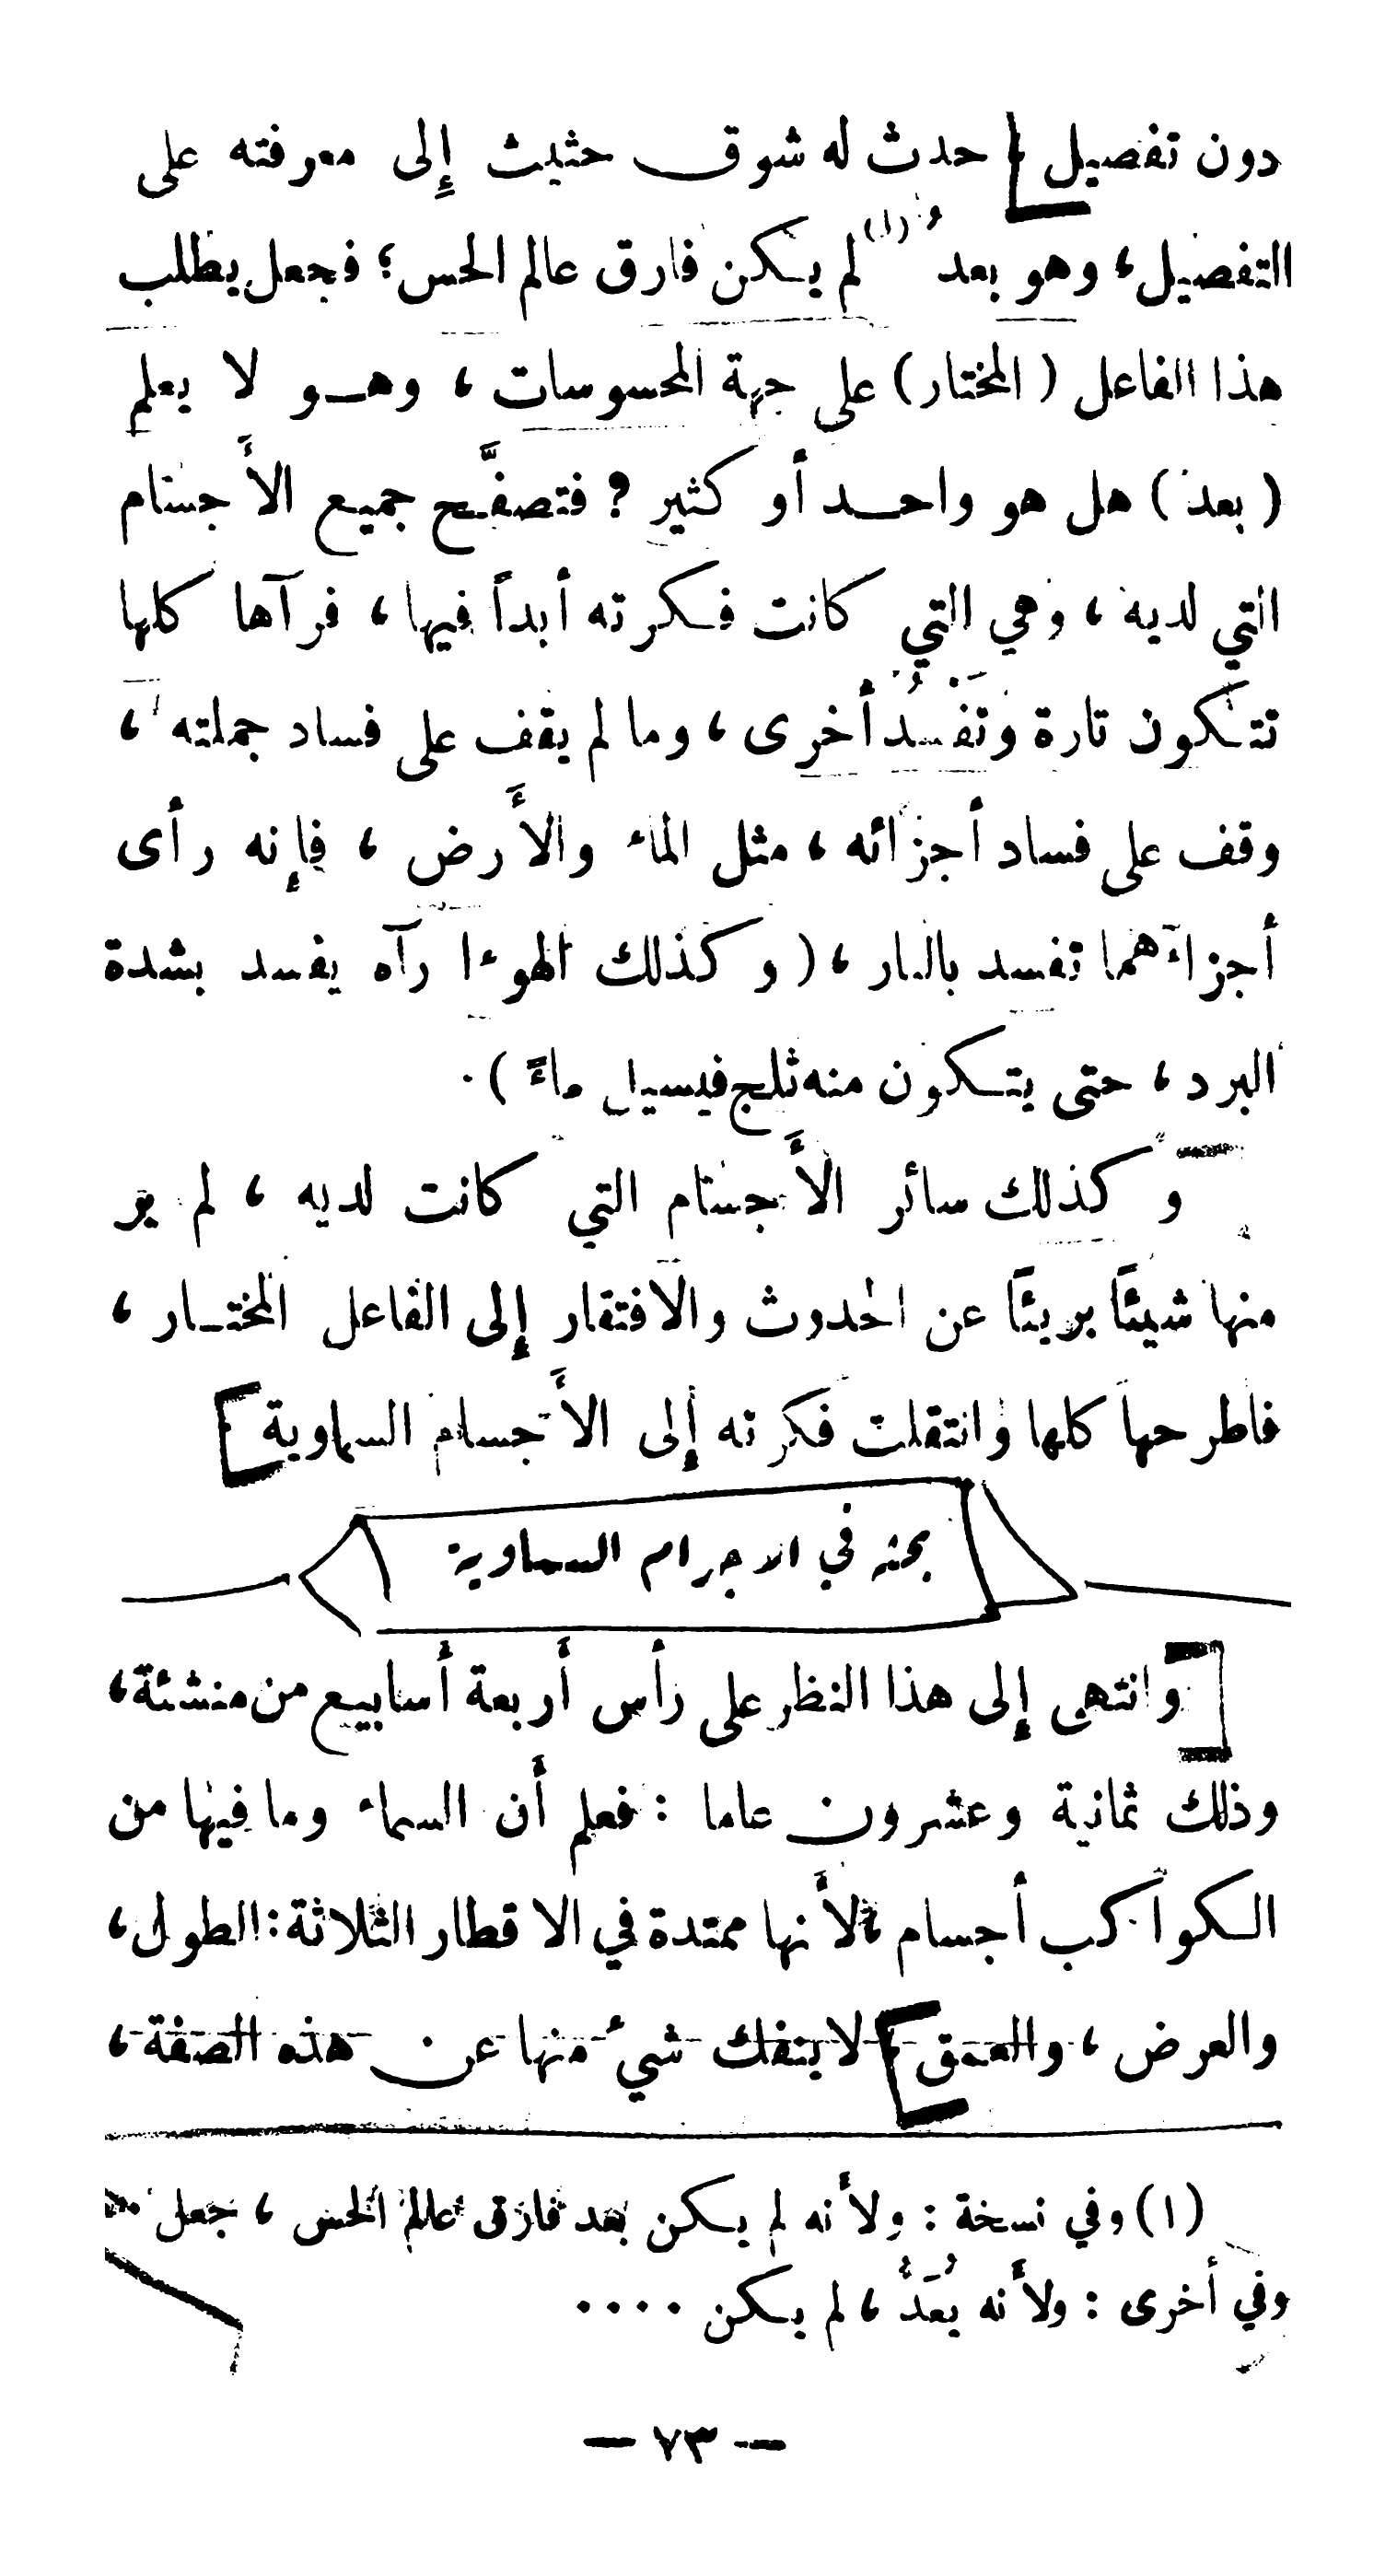 دون تفصيل، حدث له شوق حثيث إِلى معرفته على
التفصيل، وهو بعدُ (١) لم يكن فارق عالم الحس؛ فجعل يطلب
هذا الفاعل (المختار) على جهة المحسوسات، وهو لا يعلم
(بعد) هل هو واحد أو كثير؟ فتصفَّح جميع الأَجسام
التي لديه، وهي التي كانت فكرته أبداً فيها، فرآها كلها
تتكون تارة وتَفْسُدُ أخرى، وما لم يقف على فساد جملته،
وقف على فساد أجزائه، مثل الماء والأَرض، فإِنه رأى
أجزاءَهما تفسد بالنار، (وكذلك الهوءا رآه يفسد بشدة
البرد، حتى يتكون منه ثلج فيسيل ماءً).
وكذلك سائر الأَجسام التي كانت لديه، لم ير
منها شيئًا بريئًا عن الحدوث والافتقار إِلى الفاعل المختار،
فاطرحها كلها وانتقلت فكرته إِلى الأَجسام السماوية.
بحثه في الاجرام السماوية
وانتهى إِلى هذا النظر على رأس أَربعة أسابيع من منشئة،
وذلك ثمانية وعشرون عاما: فعلم أَن السماء وما فيها من
الكواكب أجسام، لأَنها ممتدة في الاقطار الثلاثة: الطول،
والعرض، والعمق، لا ينفك شيء منها عن هذه الصفة،
(١) وفي نسخة: ولأَنه لم يكن بعد فارق عالم الحس، جعل
وفي أخرى: ولأَنه بُعَدُ، لم يكن ....
— ٧٣ —